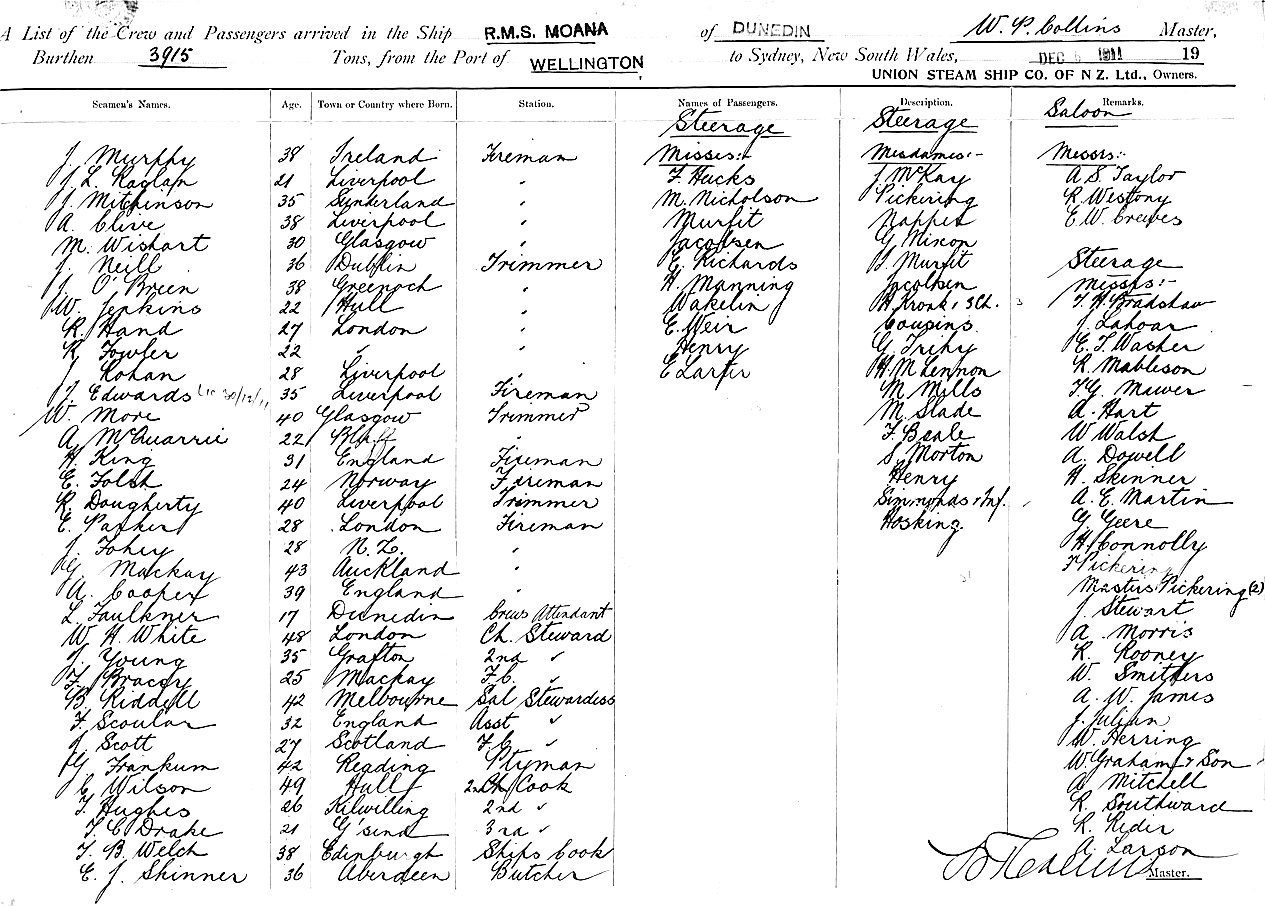 A List of the Crew and Passengers arrived in the Ship R.M.S. MOANA of DUNEDIN W. P. Collins Master,
Burthen 3915 Tons, from the Port of WELLINGTON, to Sydney, New South Wales, DEC 5 1911 19
UNION STEAM SHIP CO. OF N Z. Ltd., Owners.
Seamen's Names. Age. Town or Country where Born. Station. Names of Passengers. Description. Remarks.
Steerage Steerage Saloon
J. Murphy 38 Ireland Fireman Misses:- Mesdames:- Messrs:-
J. L. Raglan 21 Liverpool " F. Hucks J. McKay A. S. Taylor
J. Mitchinson 35 Sunderland " M. Nicholson Pickering R. Westony
A. Clive 38 Liverpool " Murfit Napper E. W. Creeves
M. Wishart 30 Glasgow " Jacobsen G. Mixon
J. Neill 36 Dublin Trimmer E. Richards S. Murfit Steerage
J. O'Breen 38 Greenoch " H. Manning Jacobsen Messrs:-
W. Jenkins 22 Hull " Wakelin H. Kronk, 3 Ch. T. H. Bradshaw
R. Hand 27 London " E. Weir Cousins J. Lahoar
R. Fowler 22 " " Henry G. Trihy E. T. Washer
J. Rohan 28 Liverpool E Larter H. McLennon R. Mableson
J. Edwards 30/12/11 35 Liverpool Fireman M. Mills F. G. Mawer
W. More 40 Glasgow Trimmer M. Slade A. Hart
A. McQuarrie 22 Bluff " F. Beale W Walsh
H. King 31 England Fireman S. Morton A. Dowell
E. Folsh 24 Norway Fireman Henry H. Skinner
R. Dougherty 40 Liverpool Trimmer Simmonds & Inf. A. E. Martin
E. Parker 28 London Fireman Hosking. G. Geere
J. Fohey 28 N. Z. " H. Connolly
G. Mackay 43 Auckland " F Pickering
A. Cooper 39 England " Masters Pickering (2)
L. Faulkner 17 Dunedin Crews Attendant J. Stewart
W. H. White 48 London Ch. Steward A. Morris
J. Young 35 Grafton 2nd " R. Rooney
F. Braccy 25 Mackay F. C. " W. Smithers
B. Riddell 42 Melbourne Sal Stewardess A. W. James
F. Scoular 32 England Asst " J. Julian
J. Scott 27 Scotland F. C. " W. Herring
G. Frankum 42 Reading Ptyman W. Graham & Son
C. Wilson 49 Hull Ch Cook A Mitchell
T. Hughes 26 Kilwilling 2nd " R. Southward
T. C Drake 21 G'send 3rd " R. Rider
T. B. Welch 38 Edinburgh Ships Cook A. Larson
E. J. Skinner 36 Aberdeen Butcher Master.